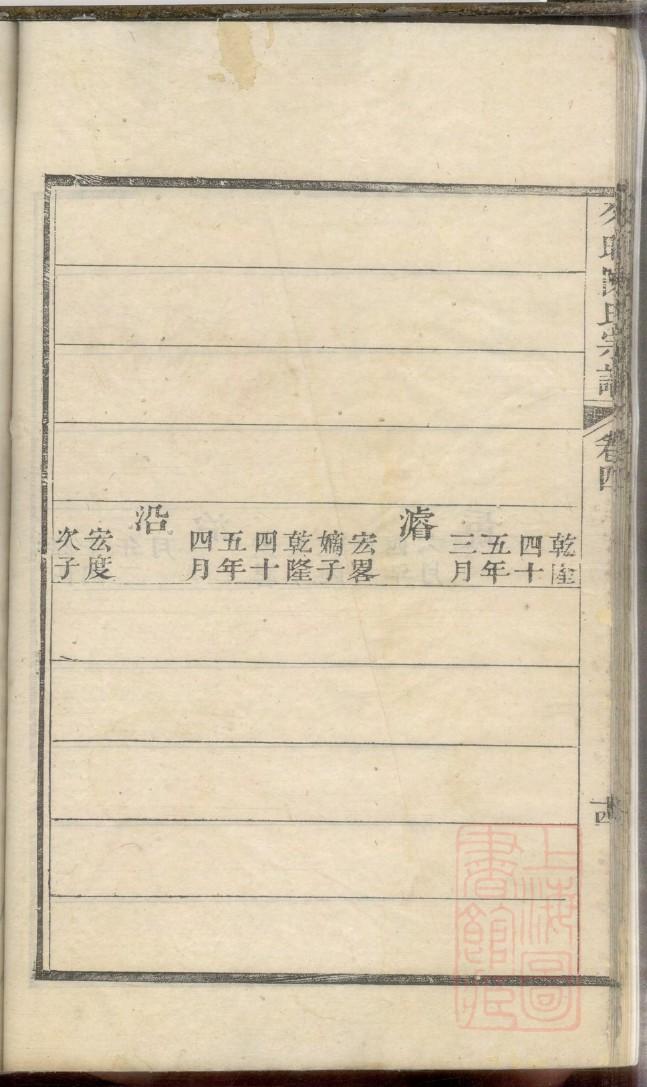 陳氏宗譜
卷四
乾隆
四十
五年
三月
濬
宏畧
嫡子
乾隆
四十
五年
四月
沿
宏度
次子
十四
上海圖
書館藏